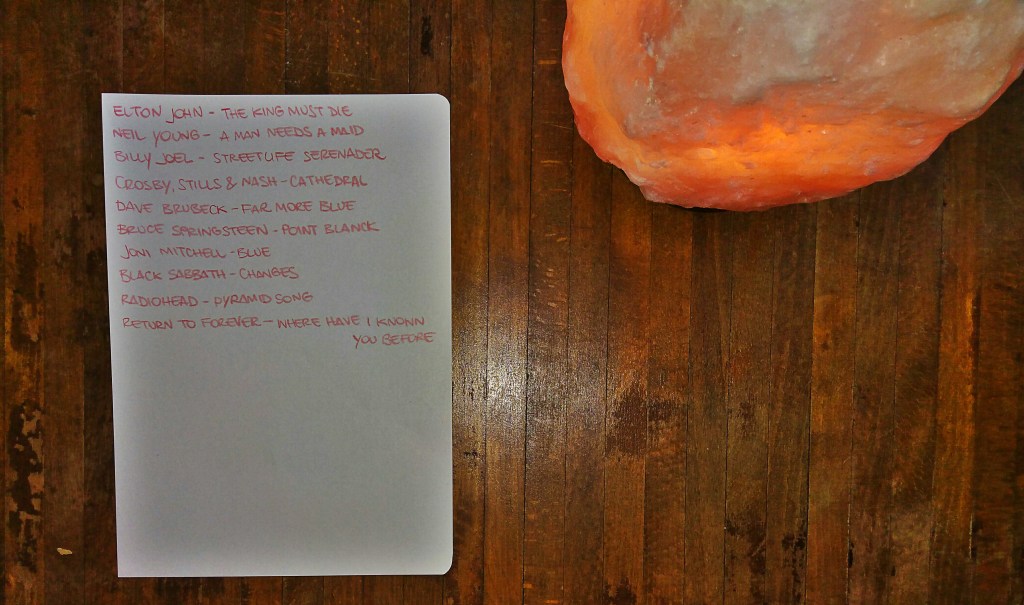 ELTON JOHN - THE KING MUST DIE
NEIL YOUNG - A MAN NEEDS A MAID
BILLY JOEL - STREETLIFE SERENADER
CROSBY, STILLS & NASH - CATHEDRAL
DAVE BRUBECK - FAR MORE BLUE
BRUCE SPRINGSTEEN - POINT BLANCK
JONI MITCHELL - BLUE
BLACK SABBATH - CHANGES
RADIOHEAD - PYRAMID SONG
RETURN TO FOREVER - WHERE HAVE I KNOWN
YOU BEFORE